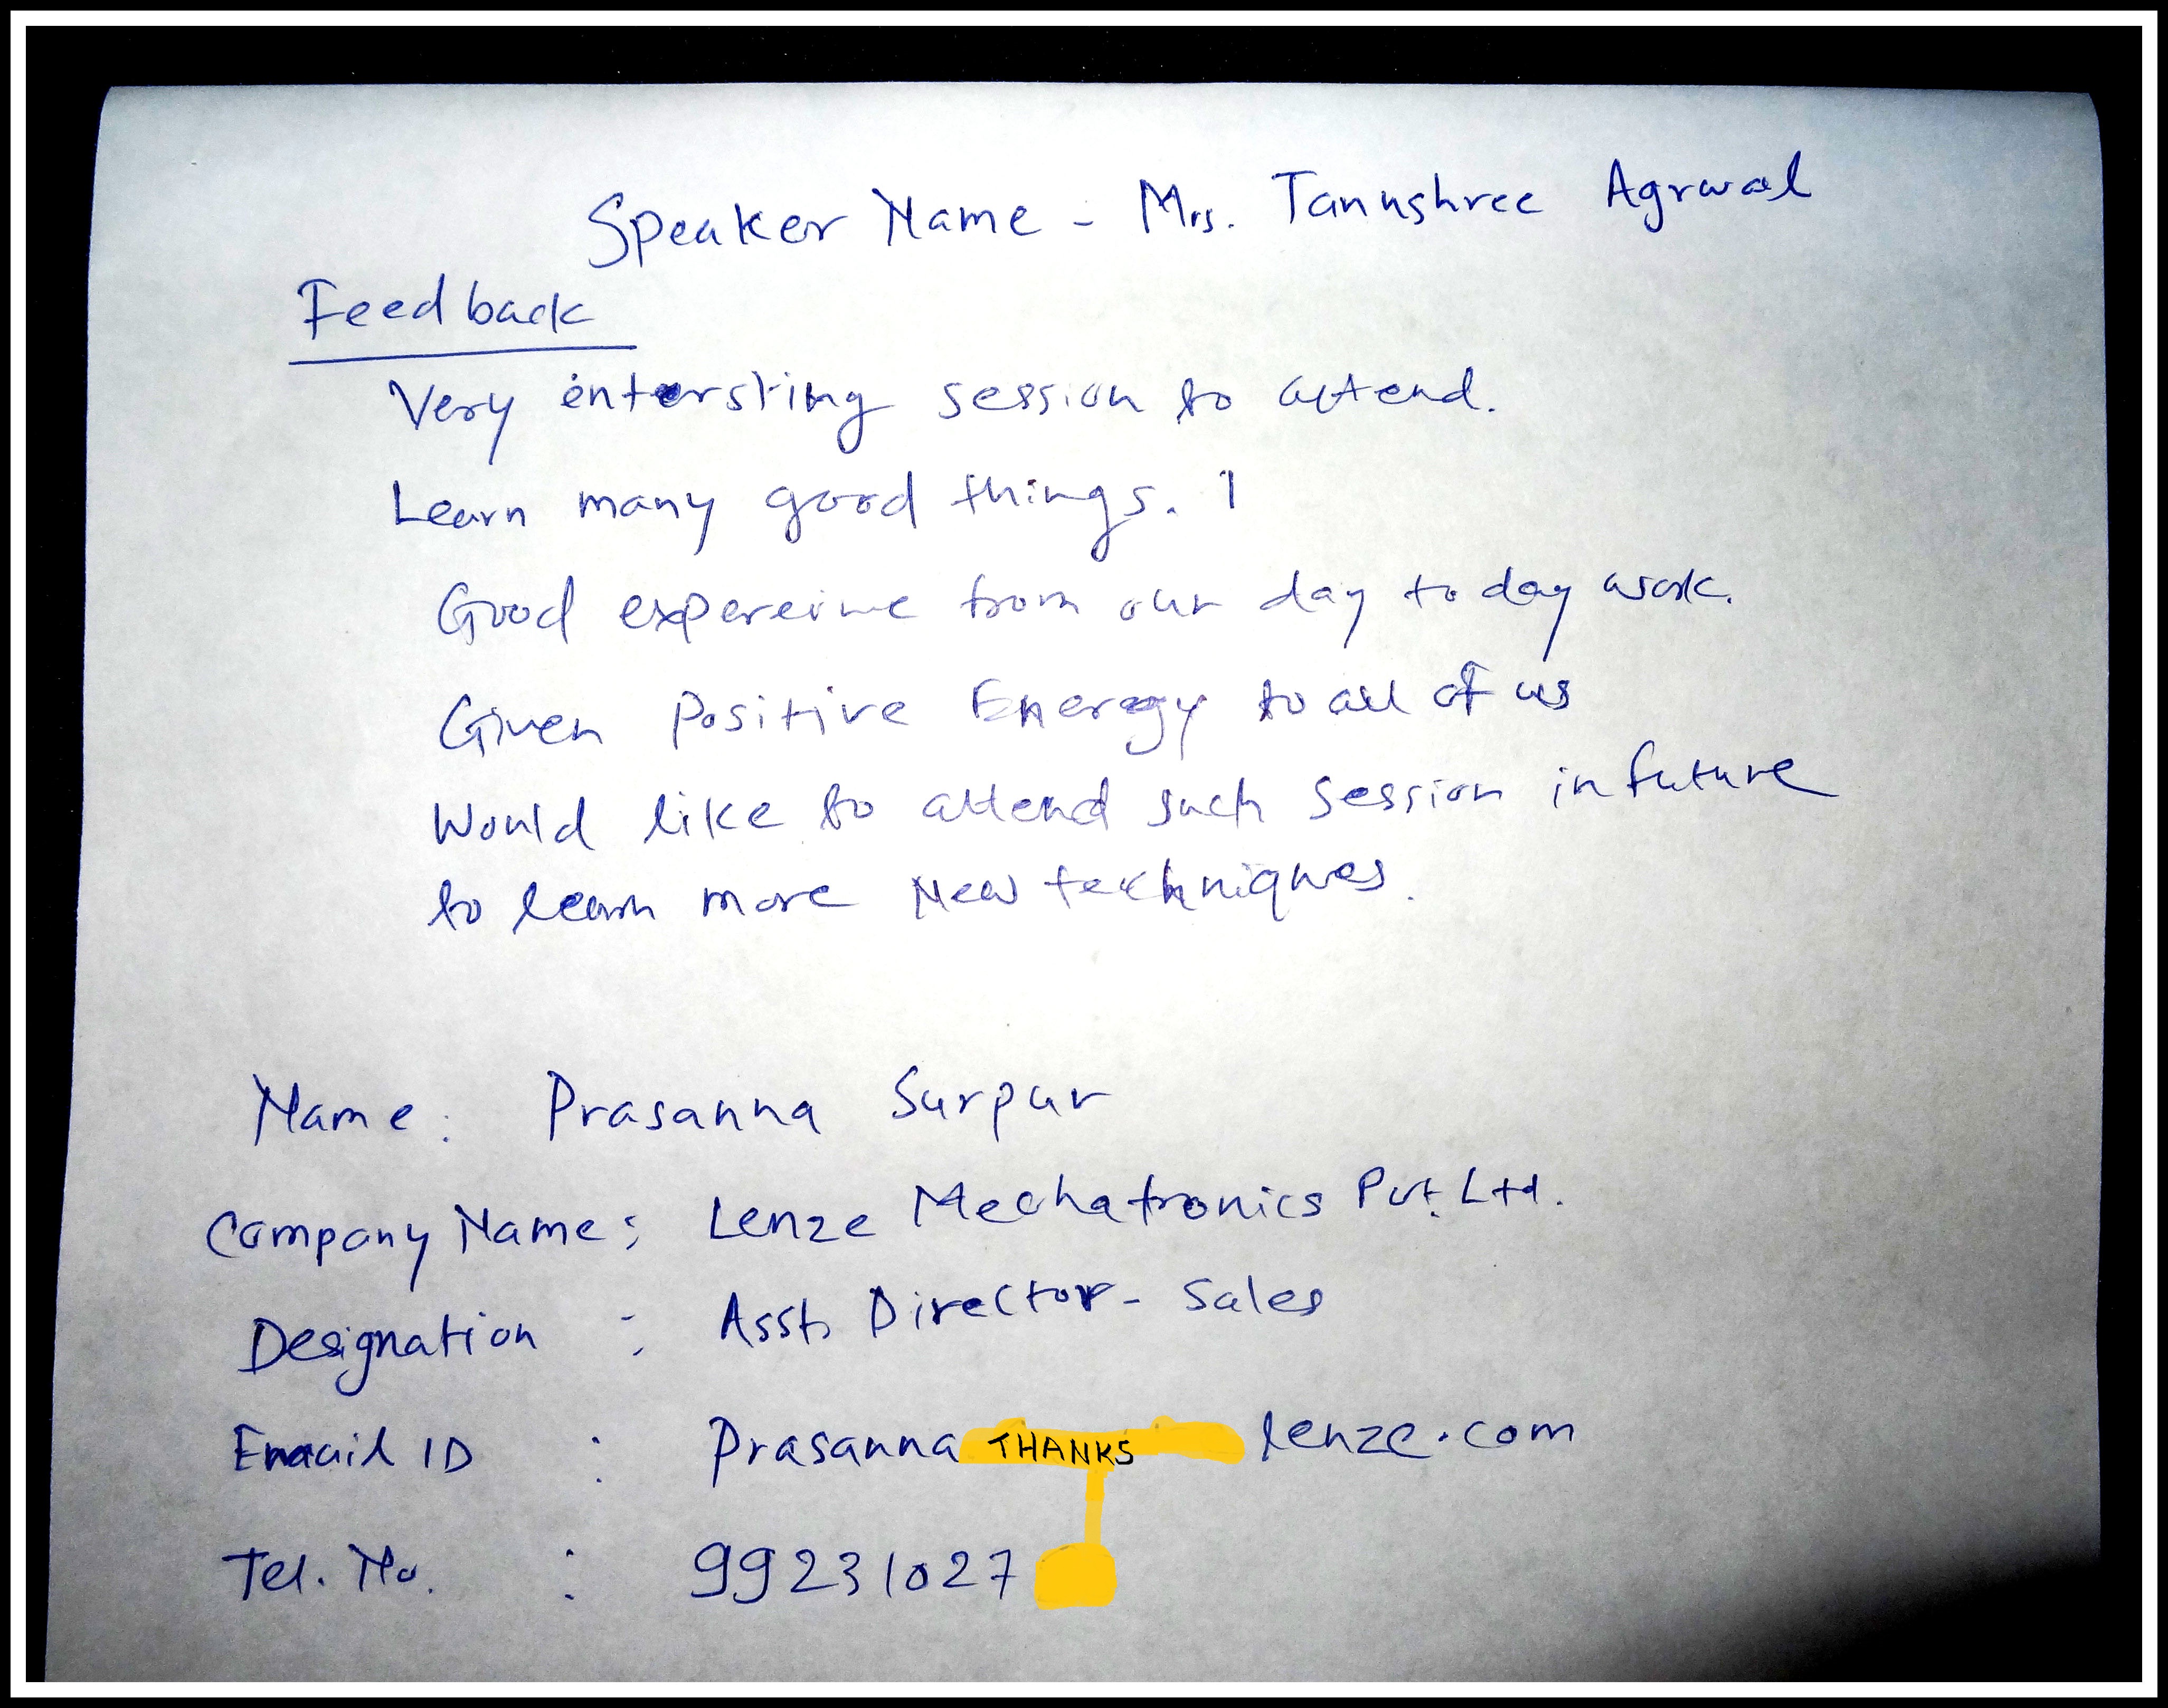 Speaker Name - Mrs. Tanushree Agrwal
Feedback
Very intersting session to attend.
Learn many good things. 1
Good expereince from our day to day work.
Given Positive Energy to all of us
Would like to attend such session in future
to learn more New techniques.
Name: Prasanna Surpur
Company Name: Lenze Mechatronics Pvt. Ltd.
Designation : Asst. Director - Sales
Email ID : Prasanna THANKS lenze.com
Tel. No. : 99231027